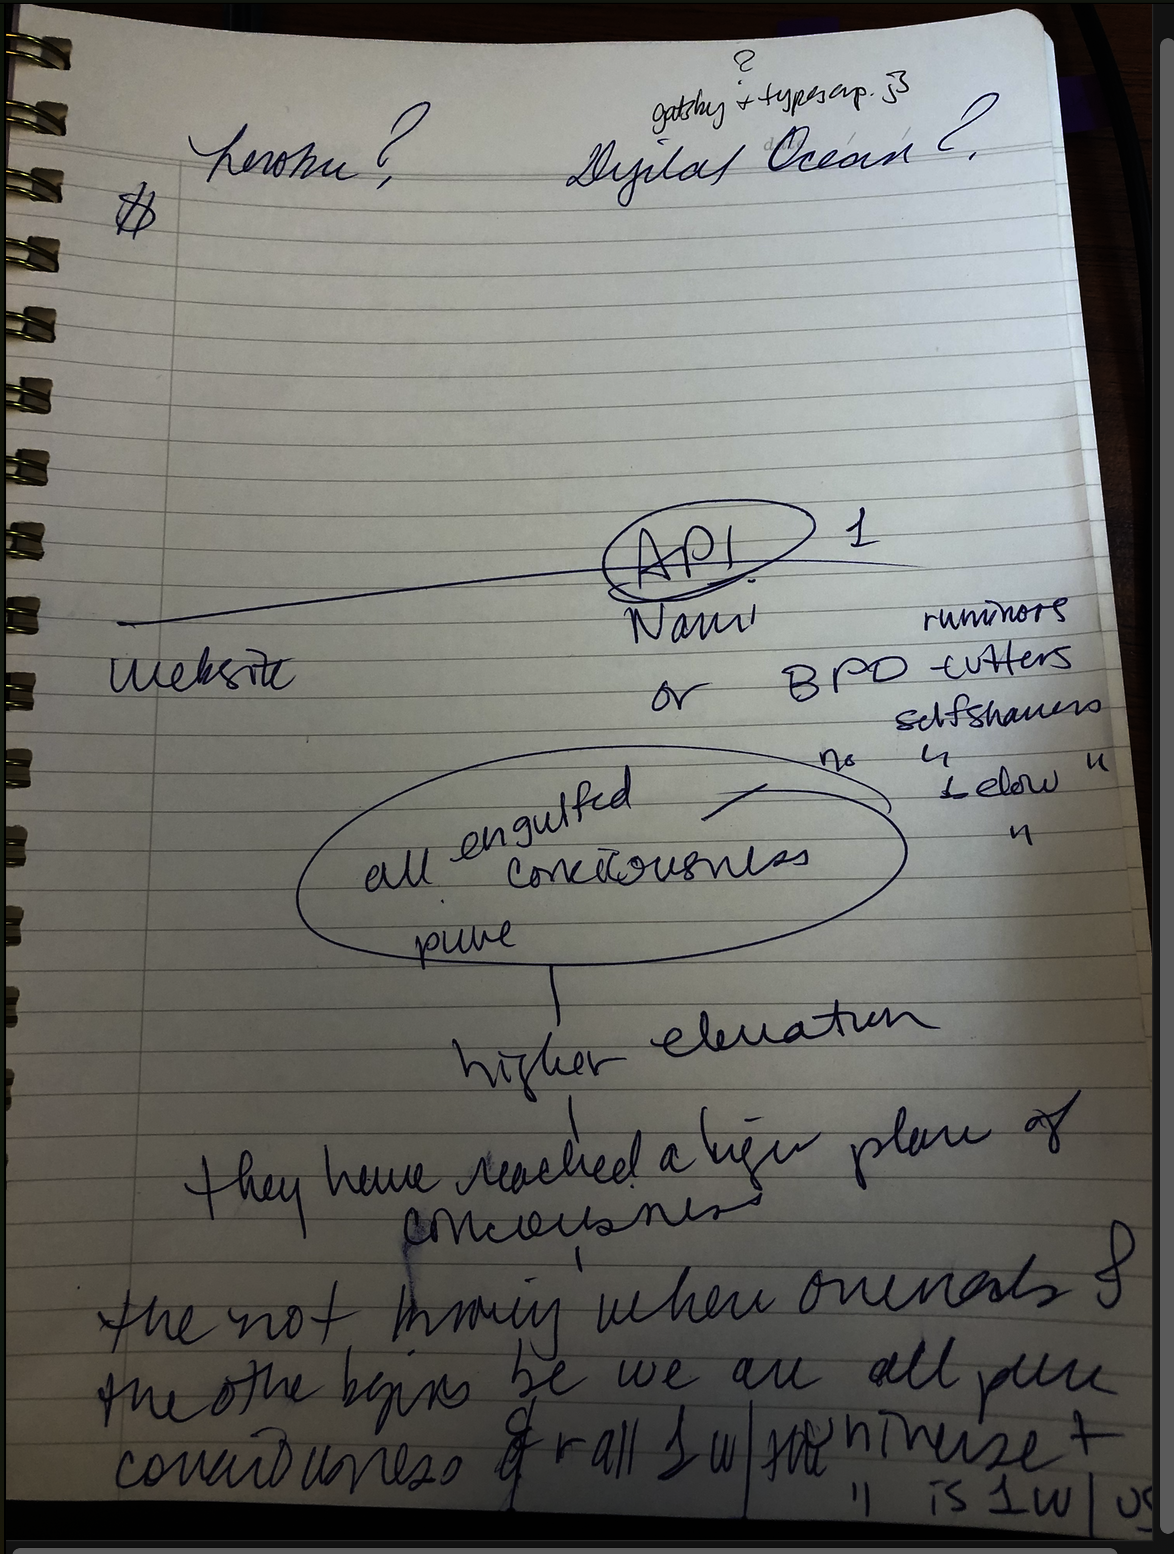 ?
gatsby + typescrip. js
heroku? Digital Ocean?
#
API 1
Nami
website
ruminors
or BPD cutters
selfshamers
no " "
1 elow
"
all engulfed
conciousness
pure
higher elevation
they have reached a higher plane of
conciousness
the not knowing where one ends &
the othe begins bc we are all pure
conciousness & r all 1 w/ the universe +
" is 1 w/ us